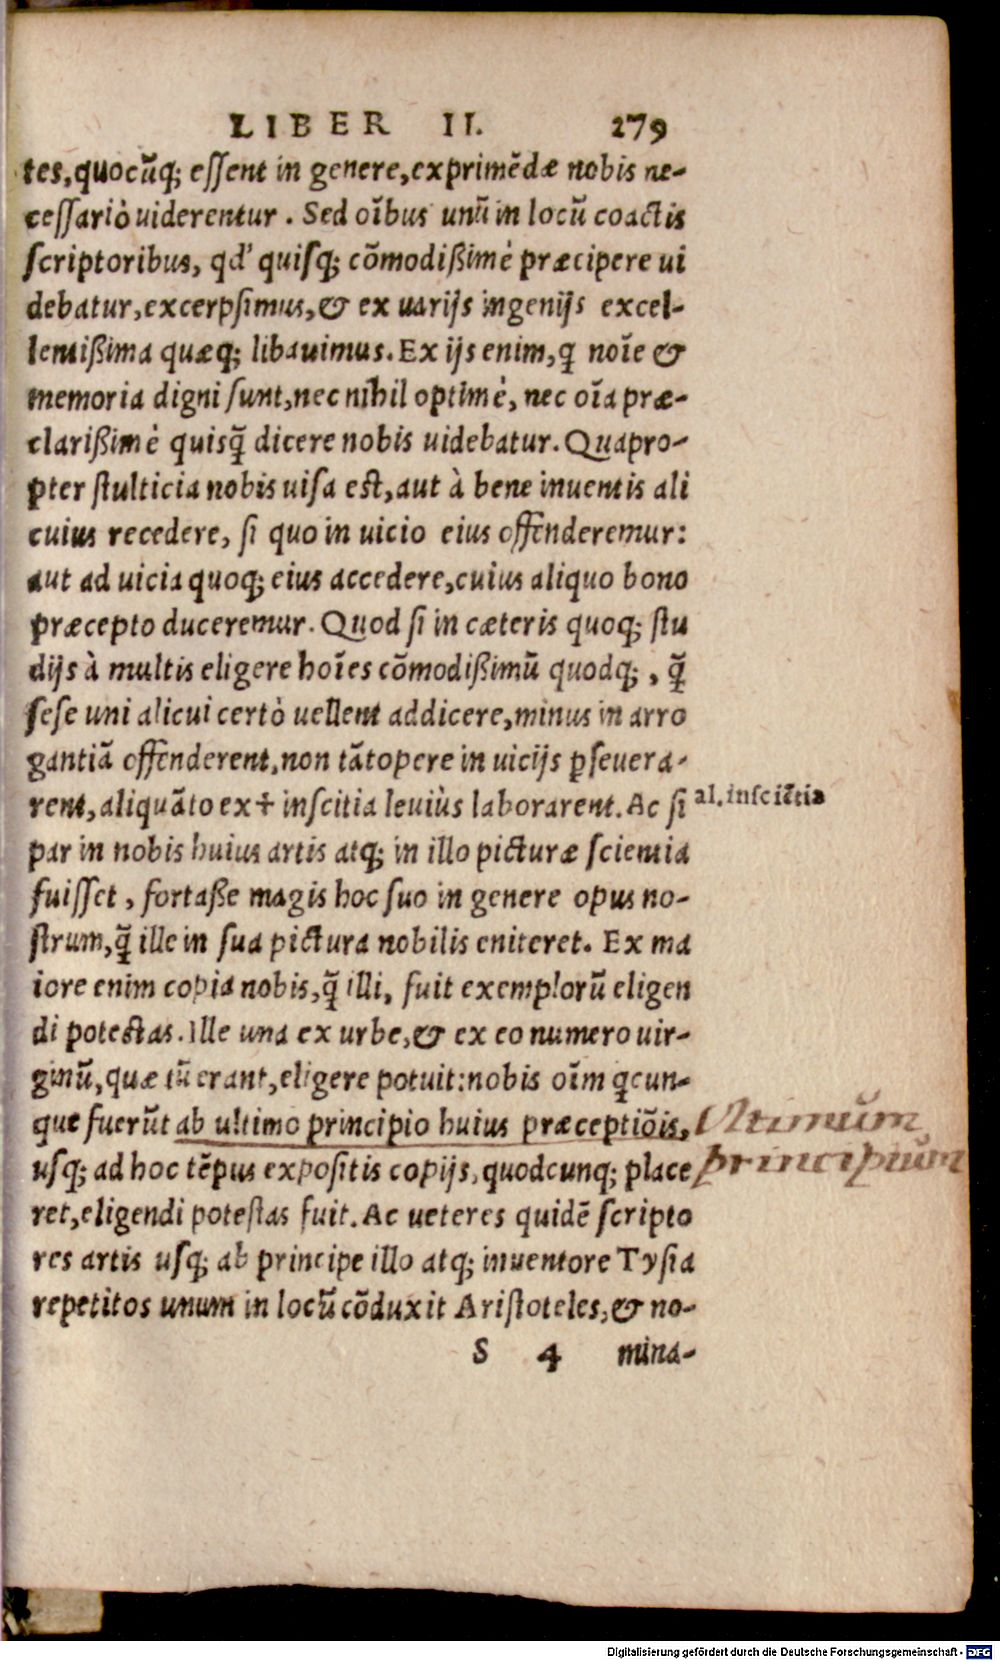 LIBER II. 279
tes, quocũq; essent in genere, exprimẽdæ nobis ne-
cessariò uiderentur. Sed oĩbus unũ in locũ coactis
scriptoribus, qd' quisq; cõmodißimè præcipere ui
debatur, excerpsimus, & ex uarijs ingenijs excel-
lentißima quæq; libauimus. Ex ijs enim, q̃ noĩe &
memoria digni sunt, nec nihil optimè, nec oĩa præ-
clarißimè quisq̃ dicere nobis uidebatur. Quapro-
pter stulticia nobis uisa est, aut à bene inuentis ali
cuius recedere, si quo in uicio eius offenderemur:
aut ad uicia quoq; eius accedere, cuius aliquo bono
præcepto duceremur. Quod si in cæteris quoq; stu
dijs à multis eligere hoĩes cõmodißimũ quodq;, q̃
sese uni alicui certò uellent addicere, minus in arro
gantiã offenderent, non tãtopere in uicijs ꝑseuera-
rent, aliquãto ex + inscitia leuiùs laborarent. Ac si
al. insciẽtia
par in nobis huius artis atq; in illo picturæ scientia
fuisset, fortaße magis hoc suo in genere opus no-
strum, q̃ ille in sua pictura nobilis eniteret. Ex ma
iore enim copia nobis, q̃ illi, fuit exemplorũ eligen
di potestas. Ille una ex urbe, & ex eo numero uir-
ginũ, quæ tũ erant, eligere potuit: nobis oĩm q̃cun-
que fuerũt ab ultimo principio huius præceptiõis,
Vltimũm
usq; ad hoc tẽpus expositis copijs, quodcunq; place
principiũm
ret, eligendi potestas fuit. Ac ueteres quidẽ scripto
res artis usq; ab principe illo atq; inuentore Tysia
repetitos unum in locũ cõduxit Aristoteles, & no-
S 4 mina-
Digitalisierung gefördert durch die Deutsche Forschungsgemeinschaft - DFG